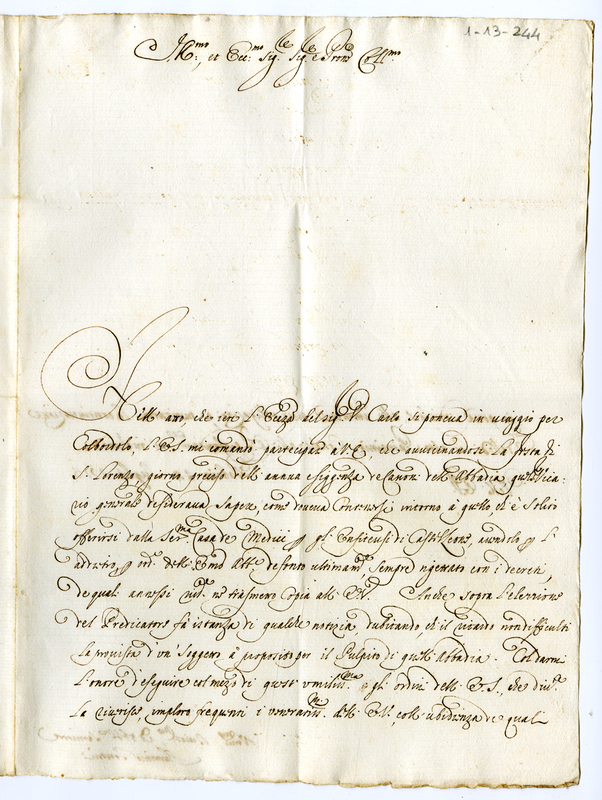 1-13-244
Ill.mo, et Ecc.mo Sig.re Sig.re e Pron Coll.mo
Nell' atto, che ieri l'Ecc.za del Sig.r D. Carlo si poneva in viaggio per
Colbordolo, l'E.S. mi comandò partecipar a V.E. che avvicinandosi la festa di
S. Lorenzo, giorno preciso dell' annua esiggenza de Canoni dell' Abbadia questo Vica-
rio generale desiderava sapere, come doveva contenersi intorno a quello, ch'è solito
offerirsi dalla Ser.ma Casa de Medici p gli Enfiteusi di Castel Leone, avendolo p l'
addietro, p ord. dell' Em.o defonto ultimam.te sempre rigettato con i decreti,
de quali annessi ne trasmetto copia all' E.V. Anche sopra l'elezzione
del Predicatore fà istanza di qualche notizia, dubitando, ch'il ritardo non difficulti
la provista d'un' Soggetto à proposito per il Pulpito di quell' Abbadia. Col darmi
l'onore d'eseguire col mezo di questi umiliss.mi gli ordini dell' E.S., che
la riverisce, imploro frequenti i veneratiss.mi dell' E.V., coll' ubidienza de quali